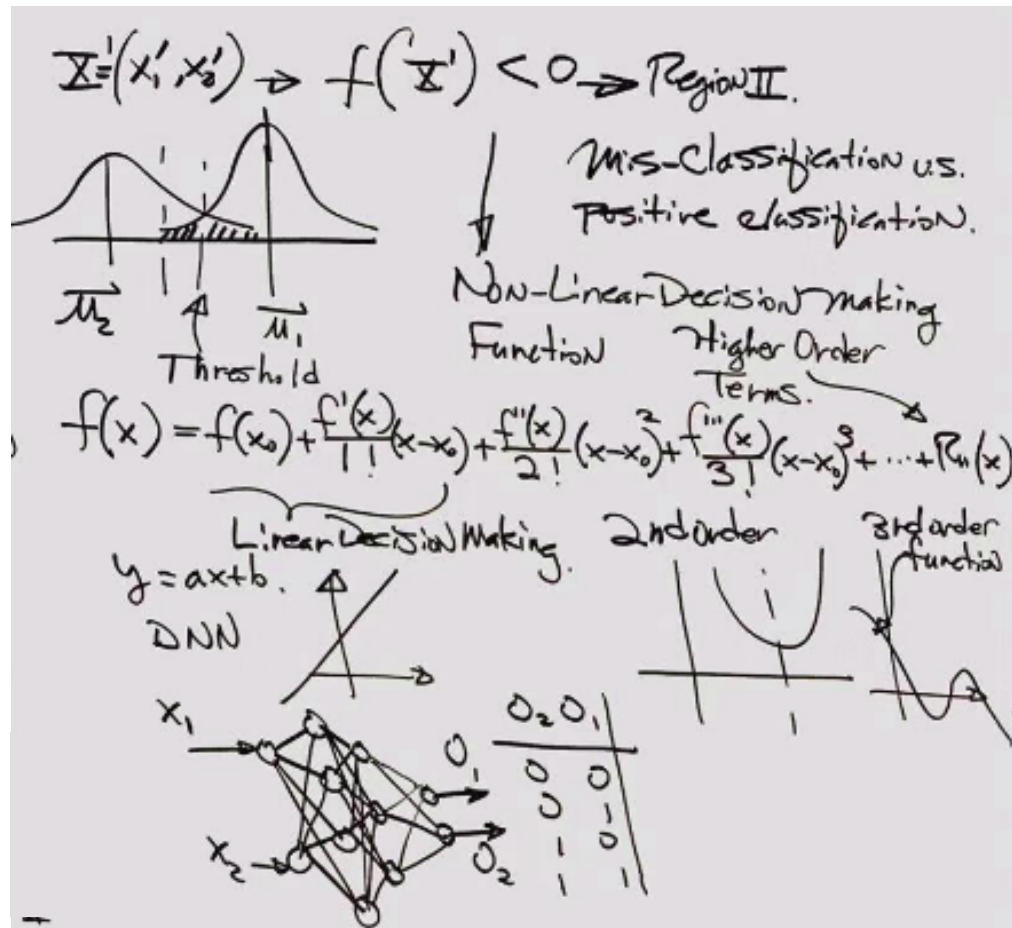 X' = (x₁', x₂') → f(X') < 0 → Region II.
Mis-Classification v.s.
Positive classification.
μ₂ μ₁
Threshold
Non-Linear Decision making
Function
Higher Order
Terms.
f(x) = f(x₀) + f'(x)/1! (x-x₀) + f''(x)/2! (x-x₀)² + f'''(x)/3! (x-x₀)³ + ... + Rₙ(x)
Linear Decision Making.
2nd order
3rd order
function
y = ax+b.
DNN
x₁
O₁
x₂
O₂
O₂ O₁
0 0
0 1
1 0
1 1